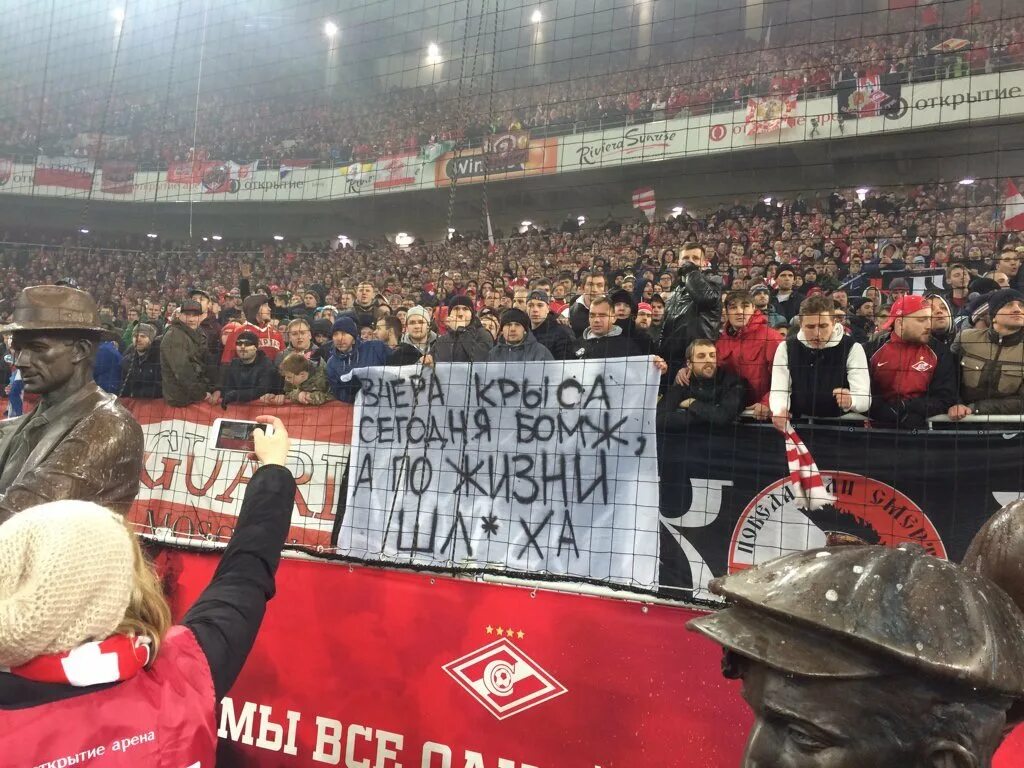 открытие
Riviera Sunrise
открытие
Win
ВЧЕРА КРЫСА
СЕГОДНЯ БОМЖ,
А ПО ЖИЗНИ
ШЛ*ХА
GUARI
MOSC
МЫ ВСЕ
открытие арена